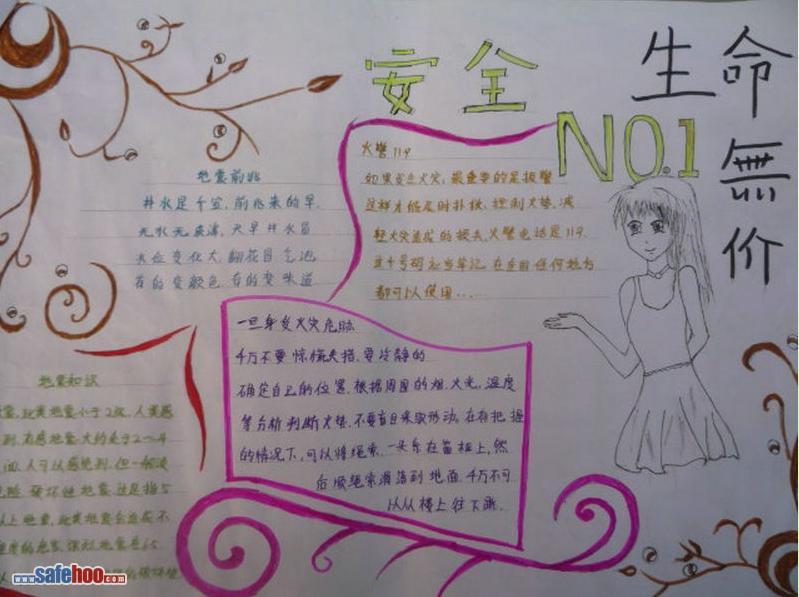 安全
NO.1
生命
無
价
地震前兆
井水是个宝,前兆来的早,
无水无
水位变化大,翻花冒气泡
有的变颜色,有的变味道
火警119
如果发生火灾,最重要的是报警
这样才能及时扑救,控制火势,减
轻火灾造成的损失,火警电话是119.
这个号码应当牢记,在全国任何地方
都可以使用……
一旦身受火灾危胁
千万不要惊慌失措,要冷静的
确定自己的位置,根据周围的烟,火光,温度
等分析判断火势,不要盲目采取形动,在有把握
的情况下,可以将绳索一头系在窗框上,然
后顺绳索滑落到地面,千万不可
以从楼上往下跳.
地震知识
震,此类地震小于2级,人类感
到,有感地震,大约是于2—4
间,人可以感觉到,但一般没
危险,破坏性地震,这是指5
以上地震,此类地震会造成不
程度的危害,强烈地震是6.5
www.safehoo.com